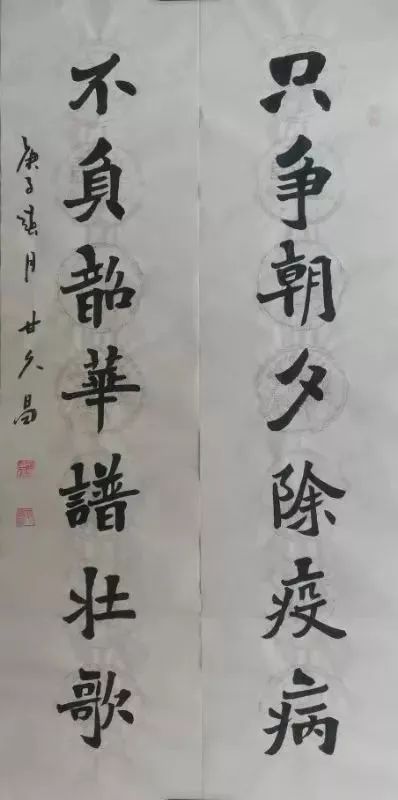 只争朝夕除疫病
不負韶華譜壮歌
庚子春月 甘久昌